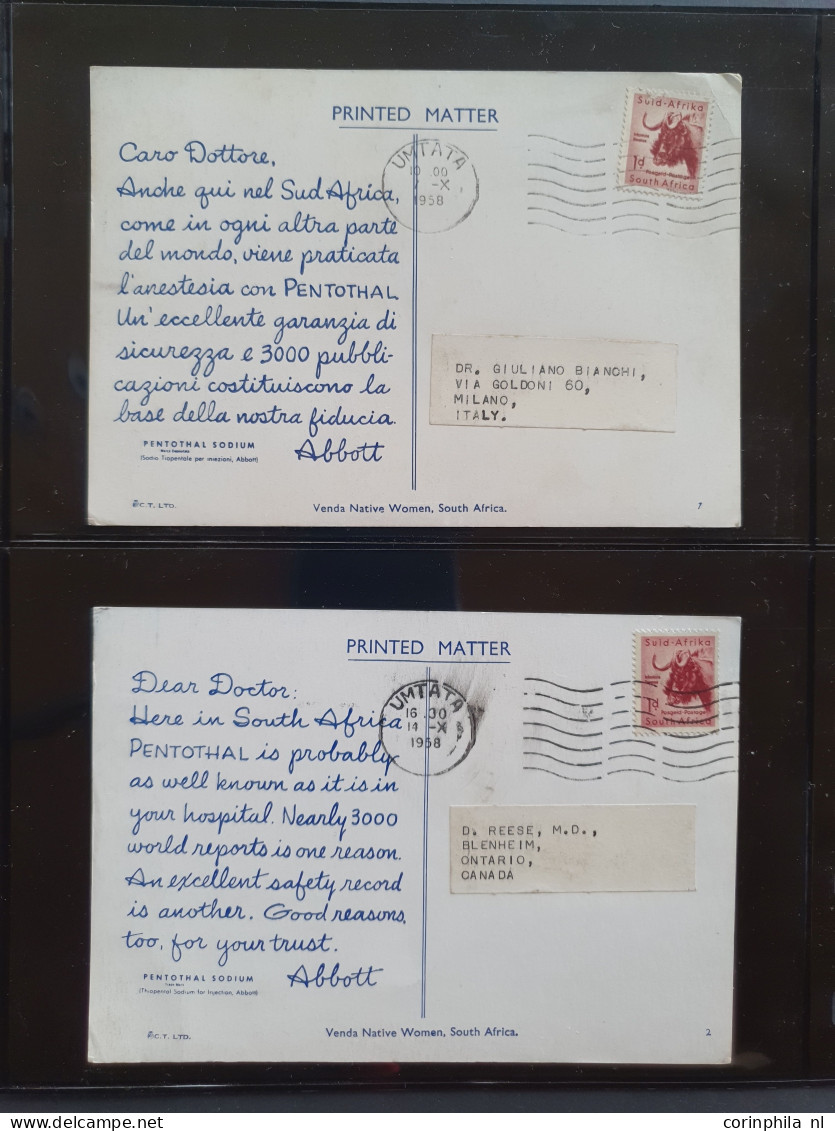 PRINTED MATTER
Suid-Afrika
1d
Posgeld-Postage
South Africa
UMTATA
10.00
-X
1958
Caro Dottore,
Anche qui nel Sud Africa,
come in ogni altra parte
del mondo, viene praticata
l'anestesia con PENTOTHAL
Un'eccellente garanzia di
sicurezza e 3000 pubbli-
cazioni costituiscono la
base della nostra fiducia.
Abbott
PENTOTHAL SODIUM
(Sodio Tiopentale per iniezioni, Abbott)
DR. GIULIANO BIANCHI,
VIA GOLDONI 60,
MILANO,
ITALY.
C.T. LTD.
Venda Native Women, South Africa.
7
PRINTED MATTER
Suid-Afrika
1d
Posgeld-Postage
South Africa
UMTATA
16.00
14 -X
1958
Dear Doctor:
Here in South Africa
PENTOTHAL is probably
as well known as it is in
your hospital. Nearly 3000
world reports is one reason.
An excellent safety record
is another. Good reasons,
too, for your trust.
Abbott
PENTOTHAL SODIUM
(Thiopental Sodium for Injection, Abbott)
D. REESE, M.D.,
BLENHEIM,
ONTARIO,
CANADA
C.T. LTD.
Venda Native Women, South Africa.
2
www.corinphila.nl